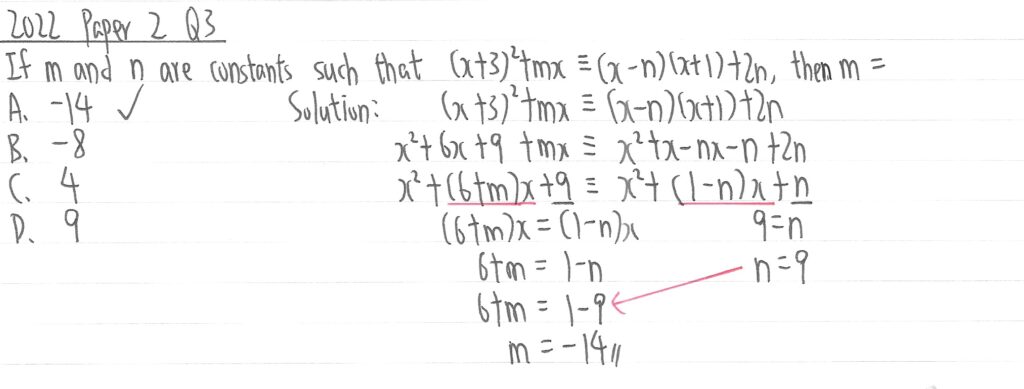 2022 Paper 2 Q3
If m and n are constants such that (x+3)²+mx ≡ (x-n)(x+1)+2n, then m =
A. -14 ✓ Solution: (x+3)²+mx ≡ (x-n)(x+1)+2n
B. -8 x²+6x+9 +mx ≡ x²+x-nx-n+2n
C. 4 x²+(6+m)x+9 ≡ x²+(1-n)x+n
D. 9 (6+m)x = (1-n)x 9=n
6+m = 1-n n=9
6+m = 1-9
m = -14//